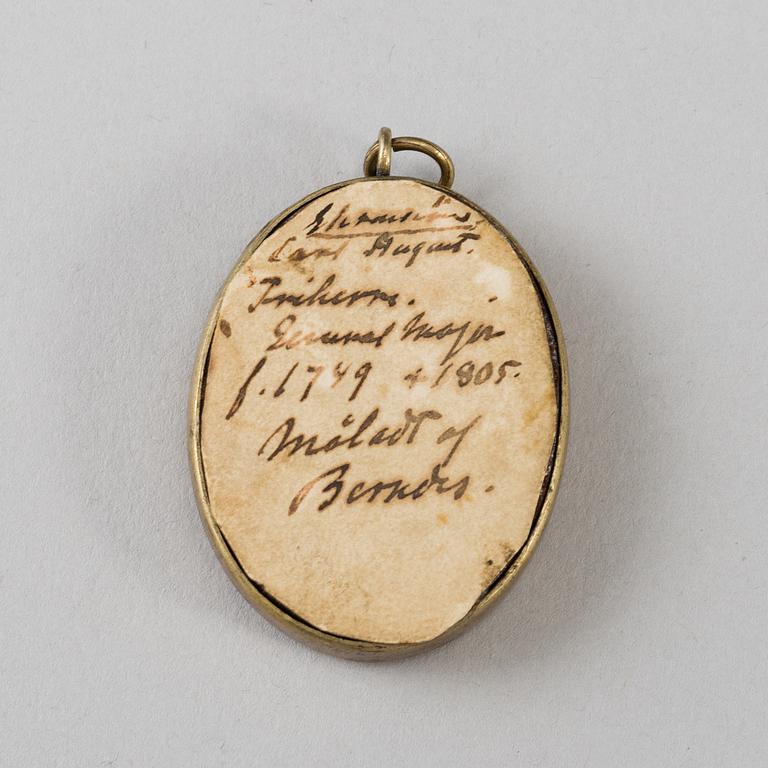 Ehrensvärd
Carl August.
Friherre.
General Major
f. 1749 + 1805.
Måladt af
Berndes.